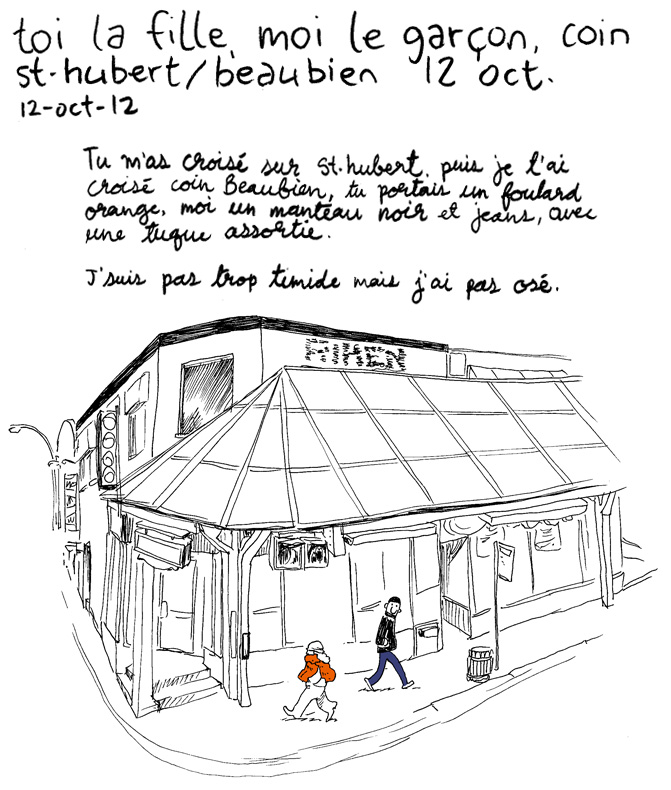 toi la fille, moi le garçon, coin
st-hubert/beaubien 12 oct.
12-oct-12
Tu m'as croisé sur st.hubert, puis je t'ai
croisé coin Beaubien, tu portais un foulard
orange, moi un manteau noir et jeans, avec
une tuque assortie.
J'suis pas trop timide mais j'ai pas osé.